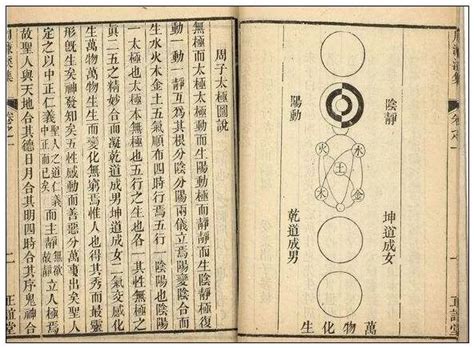 周濂溪集
卷之一
一
正誼堂
陰靜
陽動
水
火
土
金
木
坤道成女
乾道成男
萬物化生
周子太極圖說
無極而太極太極動而生陽動極而靜靜而生陰靜極復
動一動一靜互爲其根分陰分陽兩儀立焉陽變陰合而
生水火木金土五氣順布四時行焉五行一陰陽也陰陽
一太極也太極本無極也五行之生也各一其性無極之
眞二五之精妙合而凝乾道成男坤道成女二氣交感化
生萬物萬物生生而變化無窮焉惟人也得其秀而最靈
形旣生矣神發知矣五性感動而善惡分萬事出矣聖人
定之以中正仁義聖人之道仁義中正而已矣而主靜無欲故靜立人極焉
故聖人與天地合其德日月合其明四時合其序鬼神合
周濂溪集
卷之一
二
正誼堂